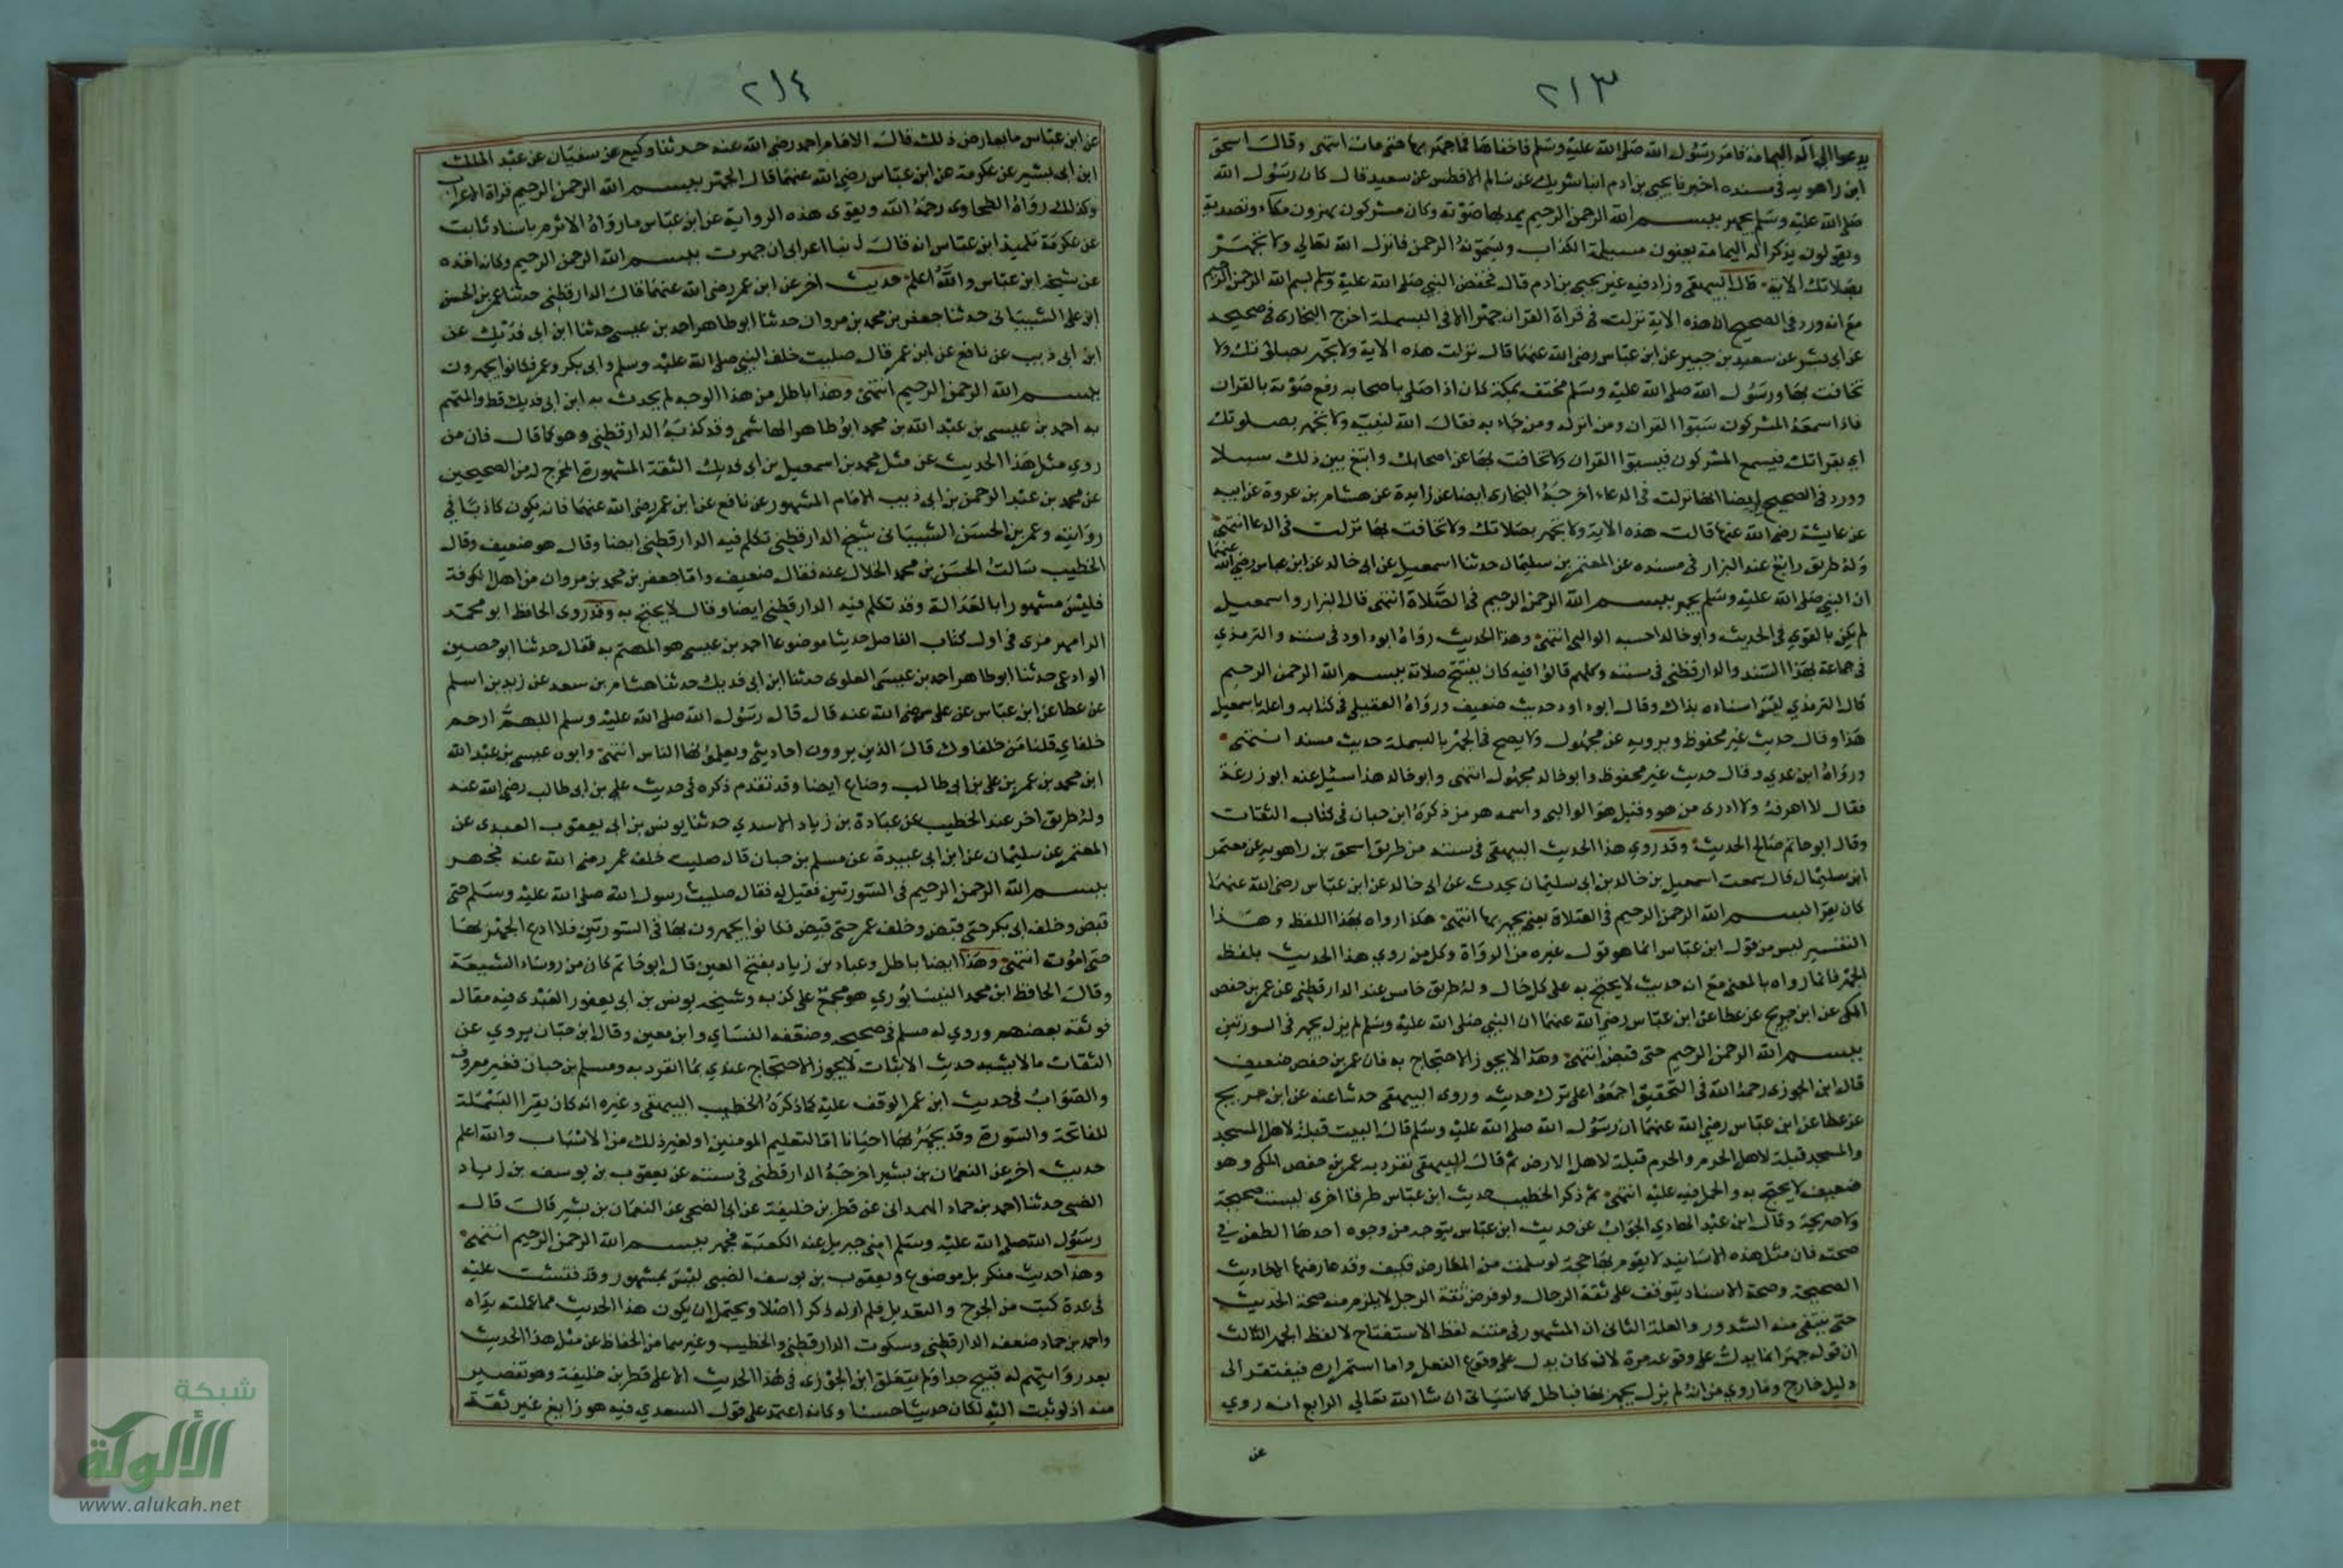 ٢١٣
يدعوا الى اله اليمامة فامر رسول الله صلى الله عليه وسلم فاخفاها فما جهر بها حتى مات انتهى وقال اسحق
ابن راهويه في مسنده اخبرنا يحيى بن ادم انبا شريك عن سالم الافطس عن سعيد قال كان رسول الله
صلى الله عليه وسلم يجهر ببسم الله الرحمن الرحيم يمد بها صوته وكان مشركون يهزون مكاء وتصدية
ويقولون يذكر اله اليمامة يعنون مسيلمة الكذاب ويسمونه الرحمن فانزل الله تعالى ولا تجهر
بصلاتك الاية قال البيهقي وزاد فيه غير يحيى بن ادم قال فخفض النبي صلى الله عليه وسلم بسم الله الرحمن الرحيم
مع انه ورد في الصحيح ان هذه الاية نزلت في قراة القران جهرا لا في البسملة اخرج البخارى في صحيحه
عن ابى بشر عن سعيد بن جبير عن ابن عباس رضي الله عنهما قال نزلت هذه الاية ولا تجهر بصلاتك ولا
تخافت بها ورسول الله صلى الله عليه وسلم مختف بمكة كان اذا صلى باصحابه رفع صوته بالقران
فاذا سمعه المشركون سبوا القران ومن انزله ومن جاء به فقال الله لنبيه ولا تجهر بصلوتك
اي بقراتك فيسمع المشركون فيسبوا القران ولا تخافت بها عن اصحابك وابتغ بين ذلك سبيلا
وورد في الصحيح ايضا انها نزلت في الدعاء اخرجه البخارى ايضا عن زايدة عن هشام بن عروة عن ابيه
عن عايشة رضي الله عنها قالت هذه الاية ولا تجهر بصلاتك ولا تخافت بها نزلت في الدعا انتهى
وله طريق رابع عند البزار في مسنده عن المعتمر بن سليمان حدثنا اسمعيل عن ابى خالد عن ابن عباس رضي الله عنهما
ان النبي صلى الله عليه وسلم يجهر ببسم الله الرحمن الرحيم في الصلاة انتهى قال البزار واسمعيل
لم يكن بالقوي في الحديث وابو خالد احسبه الوالبى انتهى وهذا الحديث رواه ابو داود في سننه والترمذي
في جماعة بهذا السند والدارقطني في سننه وكلهم قالوا فيه كان يفتتح صلاته ببسم الله الرحمن الرحيم
قال الترمذي ليس اسناده بذاك وقال ابو داود حديث ضعيف ورواه العقيلي في كتابه واعله باسمعيل
هذا وقال حديث غير محفوظ ويرويه عن مجهول ولا يصح في الجهر بالبسملة حديث مسند انتهى
ورواه ابن عدي وقال حديث غير محفوظ وابو خالد مجهول انتهى وابو خالد هذا سئل عنه ابو زرعة
فقال لا اعرفه ولا ادرى من هو وقيل هو الوالبى واسمه هرمز ذكره ابن حبان في كتاب الثقات
وقال ابو حاتم صالح الحديث وقد روي هذا الحديث البيهقى في سننه من طريق اسحق بن راهويه عن معتمر
ابن سليمان قال سمعت اسمعيل بن خالد بن ابى سليمان يحدث عن ابى خالد عن ابن عباس رضي الله عنهما
كان يقرا ببسم الله الرحمن الرحيم في الصلاة يعني يجهر بها انتهى هكذا رواه بهذا اللفظ وهذا
التفسير ليس من قول ابن عباس انما هو قول غيره من الرواة وكل من روي هذا الحديث بلفظ
الجهر فانما رواه بالمعنى مع انه حديث لا يحتج به على كل حال وله طريق خامس عند الدارقطني عن عمر بن حفص
المكى عن ابن جريج عن عطا عن ابن عباس رضي الله عنهما ان النبي صلى الله عليه وسلم لم يزل يجهر في السورتين
ببسم الله الرحمن الرحيم حتى قبض انتهى وهذا لا يجوز الاحتجاج به فان عمر بن حفص ضعيف
قال ابن الجوزى رحمه الله في التحقيق اجمعوا على ترك حديثه وروى البيهقى حدثنا عنه عن ابن جريج
عن عطا عن ابن عباس رضي الله عنهما ان رسول الله صلى الله عليه وسلم قال البيت قبلة لاهل المسجد
والمسجد قبلة لاهل الحرم والحرم قبلة لاهل الارض ثم قال البيهقى تفرد به عمر بن حفص المكى وهو
ضعيف لا يحتج به والحمل فيه عليه انتهى ثم ذكر الخطيب حديث ابن عباس طرقا اخرى ليست صحيحة
ولا صريحة وقال ابن عبد الهادي الجواب عن حديث ابن عباس يتوجه من وجوه احدها الطعن في
صحته فان مثل هذه الاسانيد لا يقوم بها حجة لو سلمت من المعارض فكيف وقد عارضها الاحاديث
الصحيحة وصحة الاسناد يتوقف على ثقة الرجال ولو فرض ثقة الرجل لا يلزم منه صحة الحديث
حتى ينتفى منه الشذوذ والعلة الثانى ان المشهور في متنه لفظ الاستفتاح لا لفظ الجهر الثالث
ان قوله جهر انما يدل على وقوعه مرة لان كان يدل على وقوع الفعل واما استمراره فيفتقر الى
دليل خارج وما روي من انه لم يزل يجهر بها فباطل كما سياتى ان شا الله تعالى الرابع انه روي
عن
٢١٤
عن ابن عباس ما يعارض ذلك قال الامام احمد رضي الله عنه حدثنا وكيع عن سفيان عن عبد الملك
ابن ابى بشير عن عكرمة عن ابن عباس رضي الله عنهما قال الجهر ببسم الله الرحمن الرحيم قراة الاعراب
وكذلك رواه الطحاوى رحمه الله ويقوى هذه الرواية عن ابن عباس ما رواه الاثرم باسناد ثابت
عن عكرمة تلميذ ابن عباس انه قال انا اعرابى ان جهرت ببسم الله الرحمن الرحيم وكانه اخذه
عن شيخه ابن عباس والله اعلم حديث اخر عن ابن عمر رضي الله عنهما قال الدارقطني حدثنا عمر بن الحسن
ابن على الشيبانى حدثنا جعفر بن محمد بن مروان حدثنا ابو طاهر احمد بن عيسى حدثنا ابن ابى فديك عن
ابن ابى ذيب عن نافع عن ابن عمر قال صليت خلف النبي صلى الله عليه وسلم وابى بكر وعمر فكانوا يجهرون
ببسم الله الرحمن الرحيم انتهى وهذا باطل من هذا الوجه لم يحدث به ابن ابى فديك قط والمتهم
به احمد بن عيسى بن عبد الله بن محمد ابو طاهر الهاشمى وقد كذبه الدارقطني وهو كما قال فان من
روي مثل هذا الحديث عن مثل محمد بن اسمعيل بن ابى فديك الثقة المشهورة المخرج له من الصحيحين
عن محمد بن عبد الرحمن بن ابى ذيب الامام المشهور عن نافع عن ابن عمر رضي الله عنهما فانه يكون كاذبا في
روايته وعمر بن الحسن الشيبانى شيخ الدارقطني تكلم فيه الدارقطني ايضا وقال هو ضعيف وقال
الخطيب سالت الحسن بن محمد الخلال عنه فقال ضعيف واما جعفر بن محمد بن مروان من اهل الكوفة
فليس مشهورا بالعدالة وقد تكلم فيه الدارقطني ايضا وقال لا يحتج به وقد روى الحافظ ابو محمد
الرامهرمزى في اول كتاب الفاصل حديثا موضوعا احمد بن عيسى هو المتهم به فقال حدثنا ابو حصين
الوادعى حدثنا ابو طاهر احمد بن عيسى العلوى حدثنا ابن ابى فديك حدثنا هشام بن سعد عن زيد بن اسلم
عن عطا عن ابن عباس عن على رضي الله عنه قال قال رسول الله صلى الله عليه وسلم اللهم ارحم
خلفاي قلنا من خلفاوك قال الذين يروون احاديثى ويعلمونها الناس انتهى وابوه عيسى بن عبد الله
ابن محمد بن عمر بن على بن ابى طالب وضاع ايضا وقد تقدم ذكره في حديث على بن ابى طالب رضي الله عنه
وله طريق اخر عند الخطيب عن عبادة بن زياد الاسدي حدثنا يونس بن ابى يعقوب العبدى عن
المعتمر عن سليمان عن ابن ابى عبيدة عن مسلم بن حبان قال صليت خلف عمر رضي الله عنه فجهر
ببسم الله الرحمن الرحيم في السورتين فقيل له فقال صليت رسول الله صلى الله عليه وسلم حتى
قبض وخلف ابى بكر حتى قبض وخلف عمر حتى قبض فكانوا يجهرون بها في السورتين فلا ادع الجهر بها
حتى اموت انتهى وهذا ايضا باطل وعباد بن زياد بفتح العين قال ابو حاتم كان من روساء الشيعة
وقال الحافظ ابن محمد النيسابوري هو مجمع على كذبه وشيخه يونس بن ابى يعفور العبدى فيه مقال
فوثقه بعضهم وروي له مسلم في صحيحه وضعفه النساي وابن معين وقال ابن حبان يروي عن
الثقات ما لا يشبه حديث الاثبات لا يجوز الاحتجاج عندي بما انفرد به ومسلم بن حبان فغير معروف
والصواب في حديث ابن عمر الوقف عليه كما ذكره الخطيب البيهقى وغيره انه كان يقرا البسملة
للفاتحة والسورة وقد يجهر بها احيانا اما لتعليم المومنين او لغير ذلك من الاسباب والله اعلم
حديث اخر عن النعمان بن بشير اخرجه الدارقطني في سننه عن يعقوب بن يوسف بن زياد
الضبى حدثنا احمد بن حماد الهمدانى عن فطر بن خليفة عن ابى الضحى عن النعمان بن بشير قالت قال
رسول الله صلى الله عليه وسلم امنى جبريل عند الكعبة فجهر ببسم الله الرحمن الرحيم انتهى
وهذا حديث منكر بل موضوع ويعقوب بن يوسف الضبى ليس بمشهور وقد فتشت عليه
في عدة كتب من الجرح والتعديل فلم ار له ذكرا اصلا ويحتمل ان يكون هذا الحديث مما عملته يداه
واحمد بن حماد ضعفه الدارقطني وسكوت الدارقطني والخطيب وغيرهما من الحفاظ عن مثل هذا الحديث
بعد روايتهم له قبيح جدا ولم يتعلق ابن الجوزى في هذا الحديث الا على فطر بن خليفة وهو تقصير
منه اذ لو ثبت اليه لكان حديثا حسنا وكانه اعتمد على قول السعدي فيه هو زايغ غير ثقة
شبكة
الألوكة
www.alukah.net